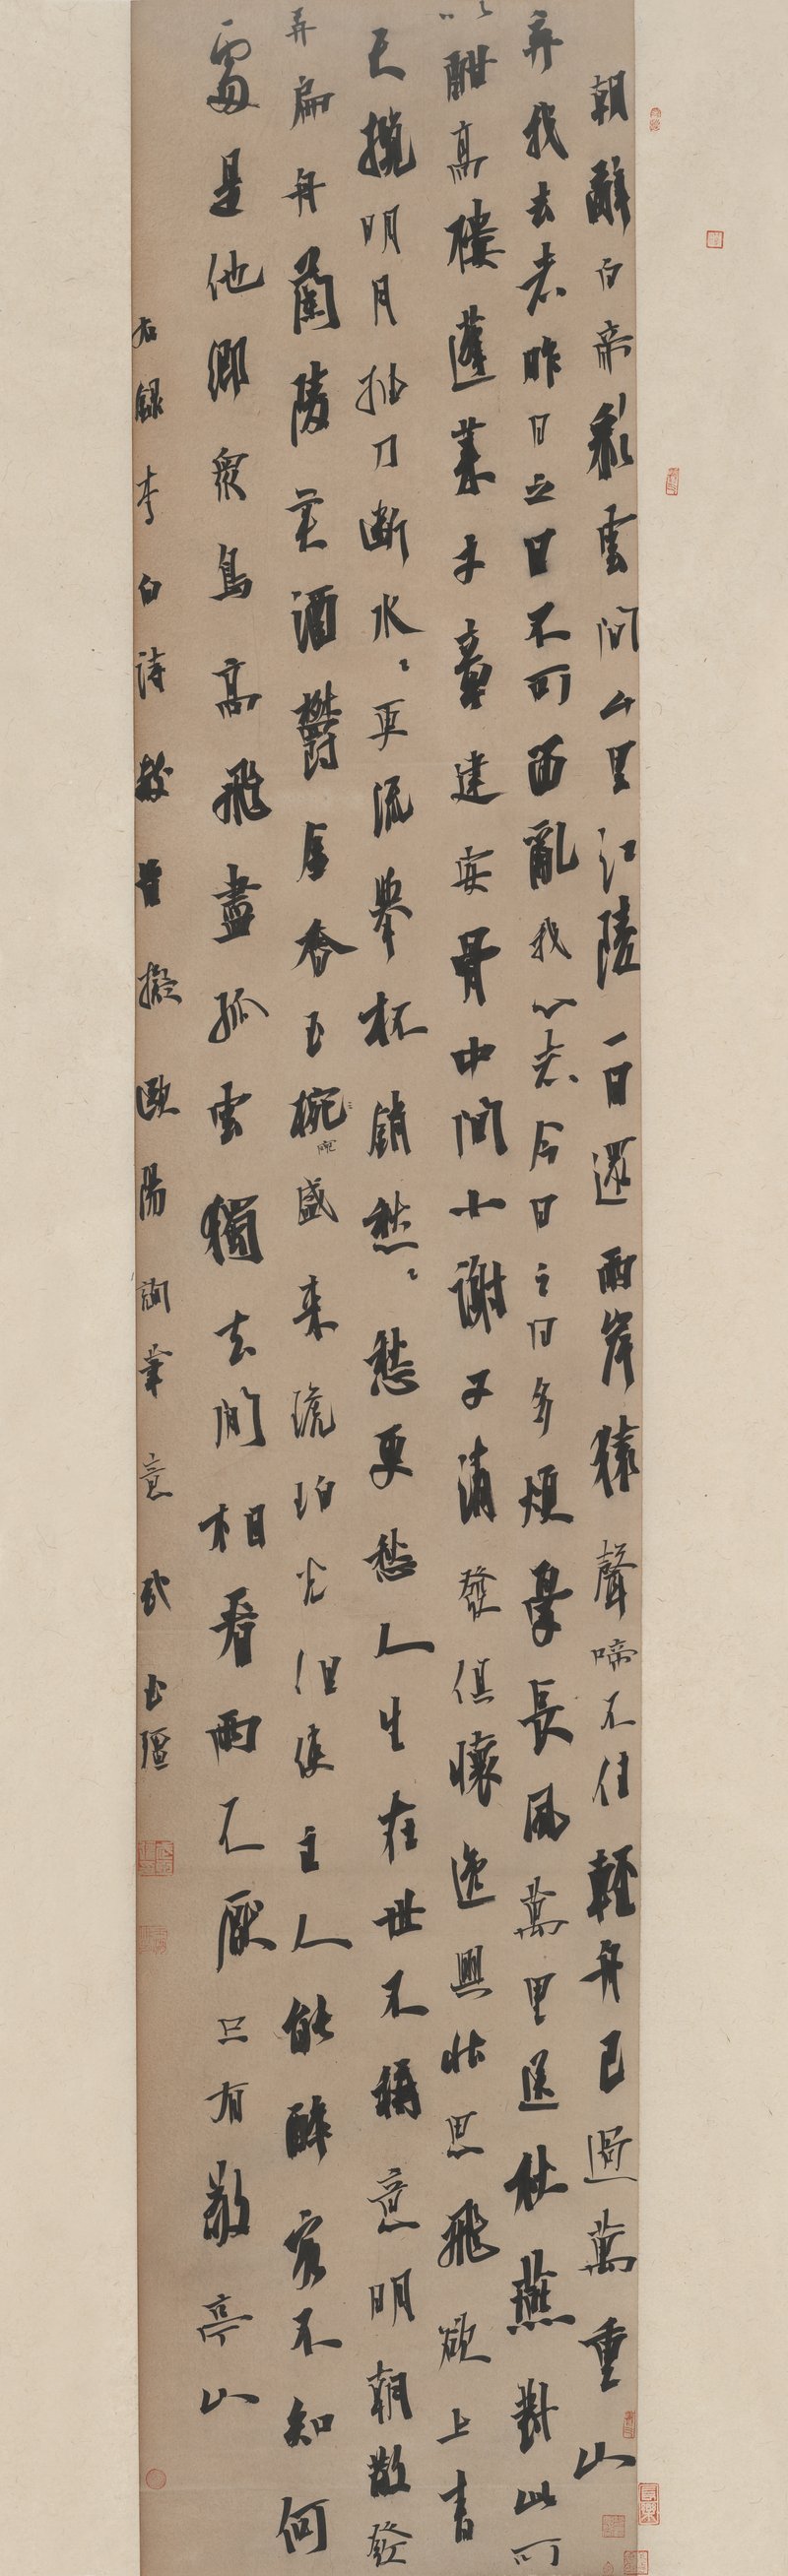 朝辭白帝彩雲間千里江陵一日還兩岸猿聲啼不住輕舟已過萬重山
弃我去者昨日之日不可留亂我心者今日之日多煩憂長風萬里送秋雁對此可
以酣高樓蓬萊文章建安骨中間小謝又清發俱懷逸興壯思飛欲上青
天攬明月抽刀斷水〻更流舉杯銷愁〻愁更愁人生在世不稱意明朝散發
弄扁舟蘭陵美酒鬱金香玉椀盛来琥珀光但使主人能醉客不知何
處是他鄉衆鳥高飛盡孤雲獨去閒相看兩不厭只有敬亭山
右録李白詩數首擬歐陽詢筆意